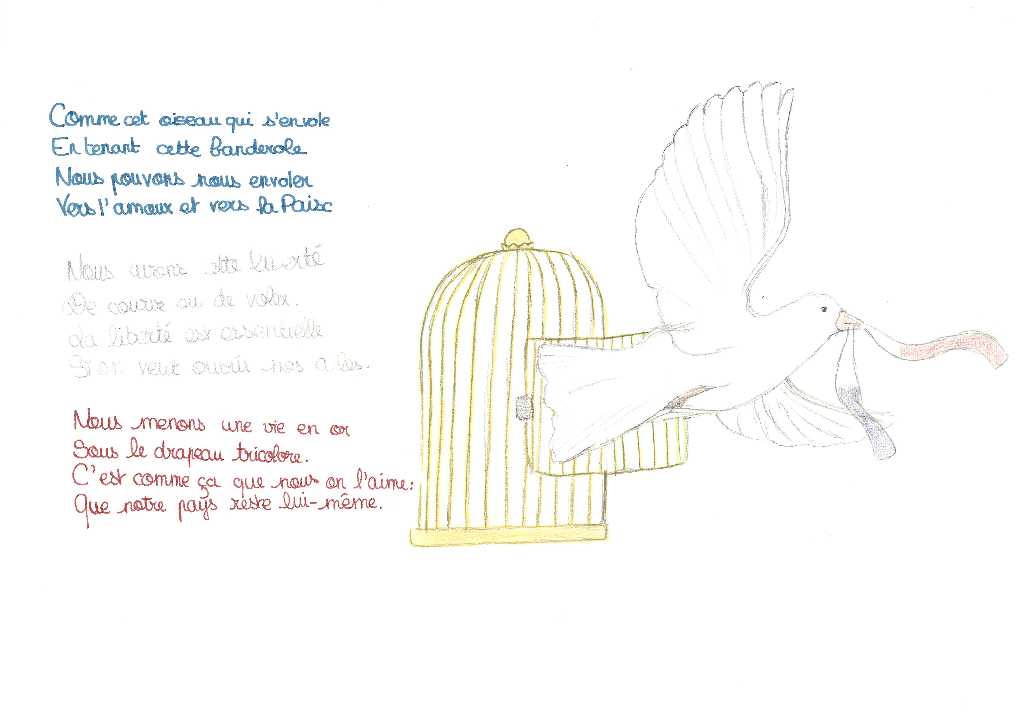 Comme cet oiseau qui s'envole
En tenant cette banderole
Nous pouvons nous envoler
Vers l'amour et vers la Paix
Nous avons cette liberté
De courir ou de voler.
La liberté est essentielle
Si on veut ouvrir nos ailes.
Nous menons une vie en or
Sous le drapeau tricolore.
C'est comme ça que nous on l'aime:
Que notre pays reste lui-même.